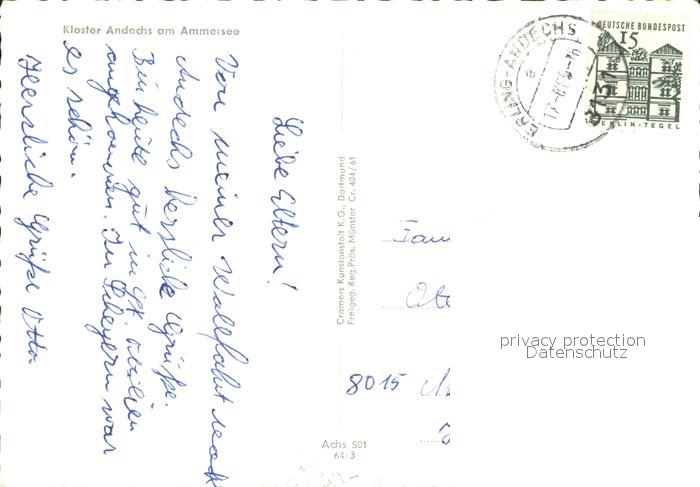 Kloster Andechs am Ammersee
Liebe Eltern!
Von meiner Wallfahrt nach
Andechs herzliche Grüße.
Bin heute gut in St. Ottilien
angekommen. In Scheyern war
es schön.
Herzliche Grüße Otto
Cramers Kunstanstalt K.G., Dortmund
Freigeg. Reg.Präs. Münster Cr. 404/61
Achs 501
64/3
ERLING-ANDECHS
a
8131
DEUTSCHE BUNDESPOST
15
BERLIN-TEGEL
Fam
8015
privacy protection
Datenschutz